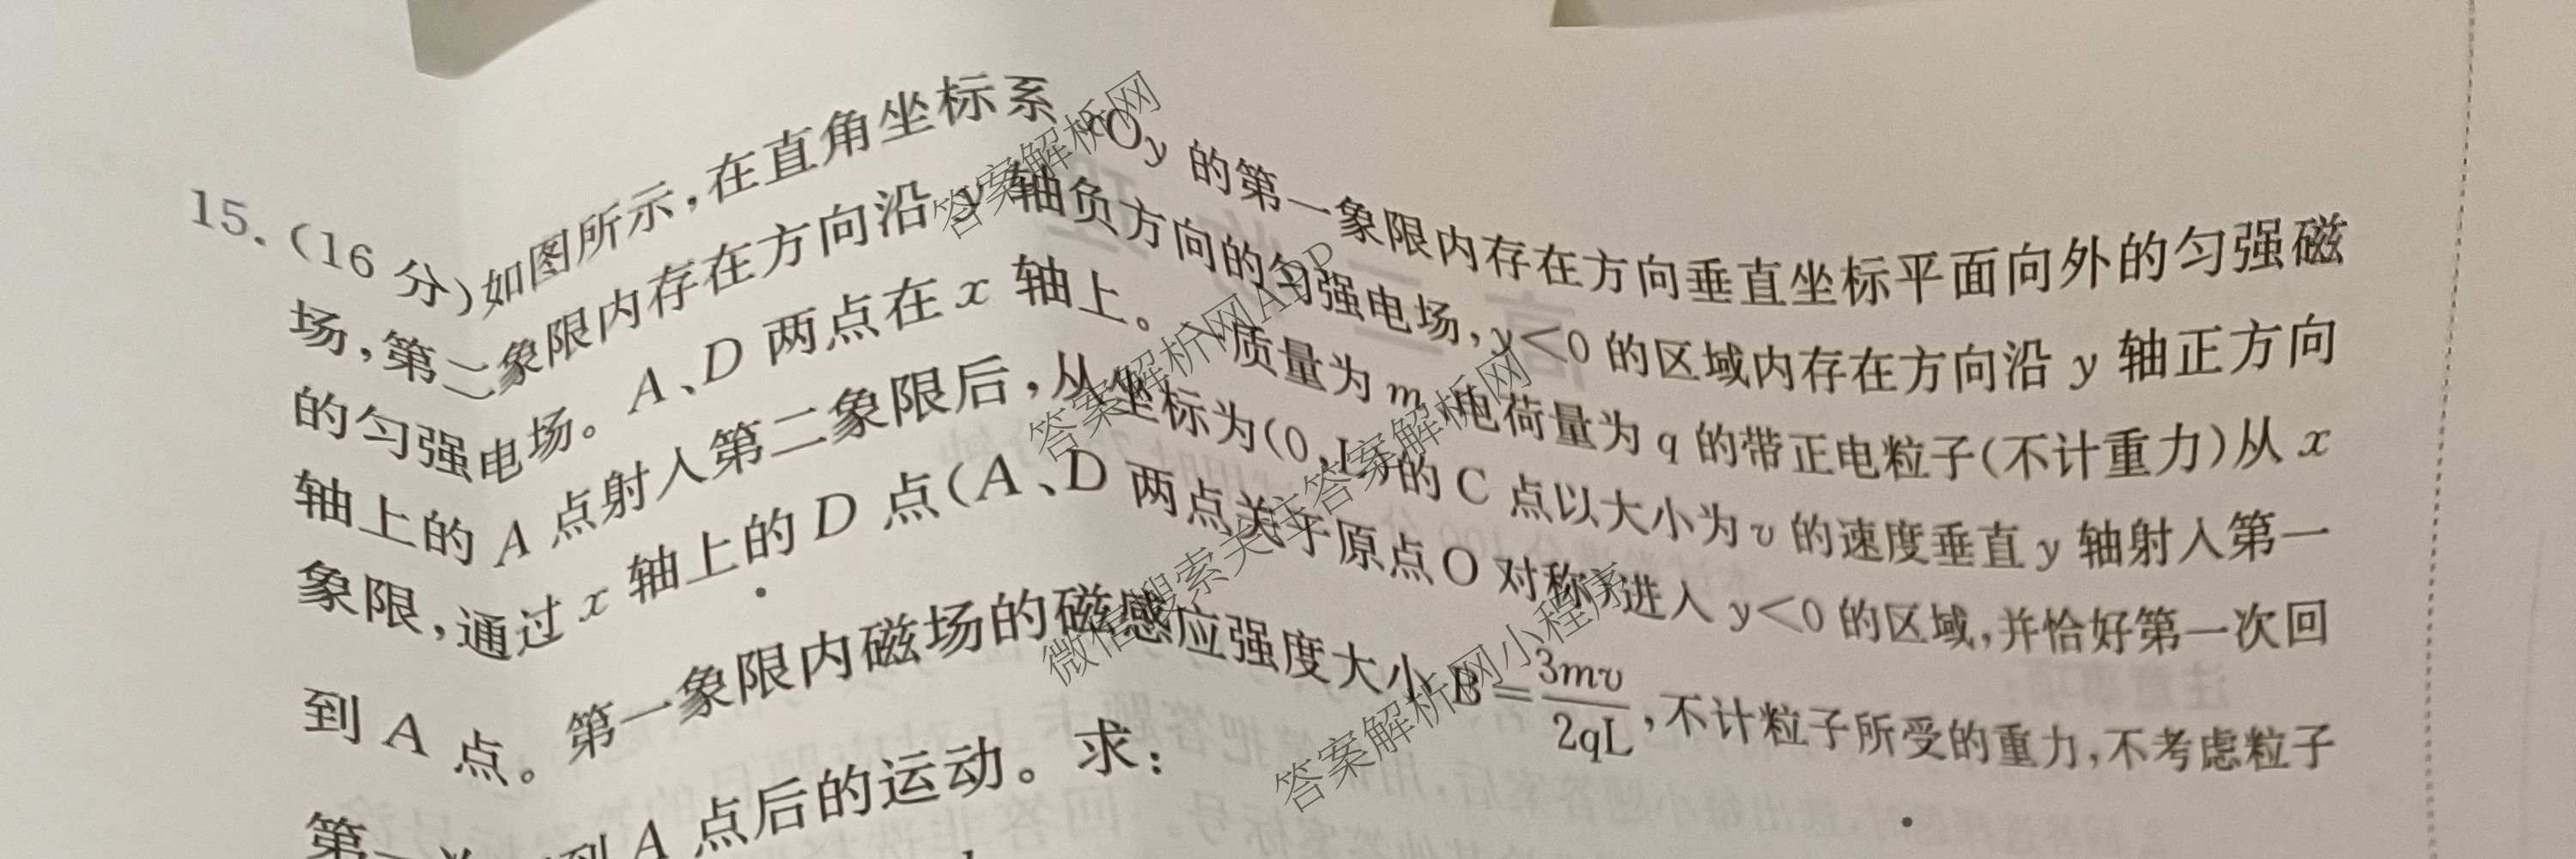 15.(16 分)如图所示,在直角坐标系 xOy 的第一象限内存在方向垂直坐标平面向外的匀强磁
场,第二象限内存在方向沿 y 轴负方向的匀强电场,y<0 的区域内存在方向沿 y 轴正方向
的匀强电场。A、D 两点在 x 轴上。一质量为 m、电荷量为 q 的带正电粒子(不计重力)从 x
轴上的 A 点射入第二象限后,从坐标为(0,L)的 C 点以大小为 v 的速度垂直 y 轴射入第一
象限,通过 x 轴上的 D 点(A、D 两点关于原点 O 对称)进入 y<0 的区域,并恰好第一次回
到 A 点。第一象限内磁场的磁感应强度大小 B=3mv/2qL,不计粒子所受的重力,不考虑粒子
第一 到 A 点后的运动。求:
答案解析网
答案解析网APP
微信搜索关注答案解析网
答案解析网小程序